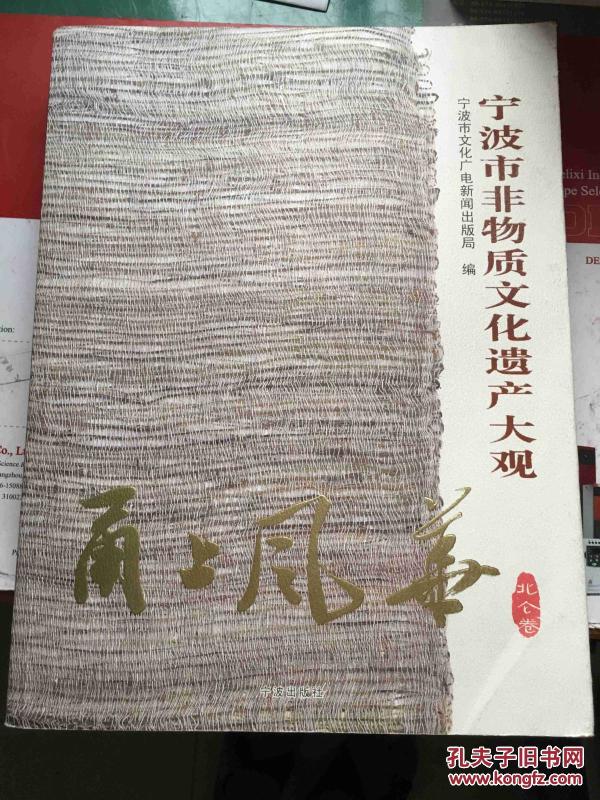 宁波市非物质文化遗产大观
宁波市文化广电新闻出版局 编
甬上风华
北仑卷
宁波出版社
elixi In
pe Sele
DE
tion:
Co., L
Science &
310023
孔夫子旧书网
www.kongfz.com